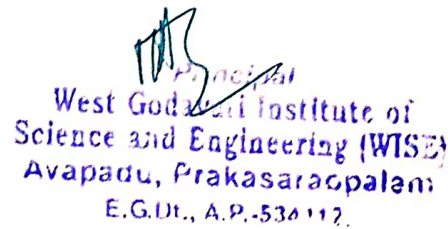 Principal
West Godavari Institute of
Science and Engineering (WISE)
Avapadu, Prakasaraopalem
E.G.Dt., A.P.-534112.